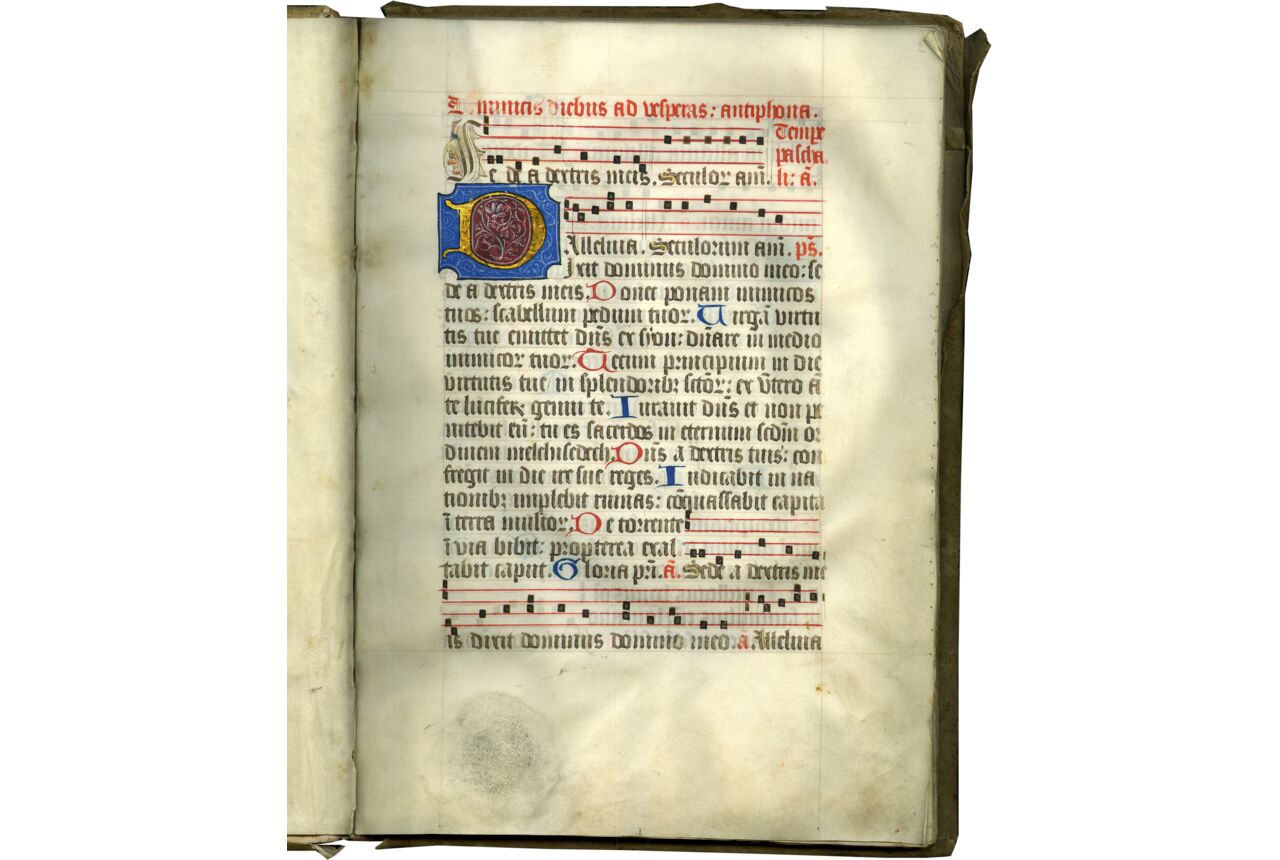 Dominicis diebus ad vesperas: antiphona.
Tempe
pascha
Se de a dextris meis. Seculoꝝ am̄. li: a̅.
Alleluia. Seculorum am̄. ps̄.
Dixit dominus domino meo: se
de a dextris meis. Donec ponam inimicos
tuos: scabellum pedum tuoꝝ. Uirgā virtu
tis tue emittet dn̄s ex syon: dn̄are in medio
inimicoꝝ tuoꝝ. Tecum principium in die
virtutis tue in splendoribꝫ sctōꝝ: ex vtero a̅
te lucifeꝝ genui te. Iurauit dn̄s et non pe
nitebit eū: tu es sacerdos in eternum scdm̄ or
dinem melchisedech. Dn̄s a dextris tuis: con
fregit in die ire sue reges. Iudicabit in na
tionibꝫ implebit ruinas: cōquassabit capita
ī terra multoꝝ. De torrente
ī via bibit: propterea exal
tabit caput. Gloria pr̄i. a̅. Sede a dextris me
is dixit dominus domino meo. a̅ Alleluia